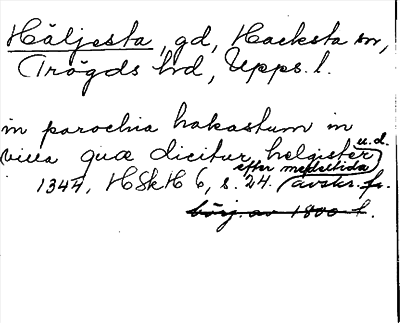 Häljesta, gd, Hacksta sn,
Trögds hd, Upps. l.
in parochia hakastum in
villa quæ dicitur helgister u.d.
1344, HSkH 6, s. 24. (avskr. fr.
efter medeltida)
börj. av 1800 t.